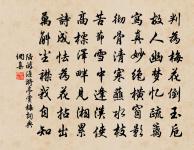 判為梅花倒玉卮
故人幽夢憶疏籬
寫真妙絕橫窗影
徹骨清寒蘸水枝
苦節雪中逢漢使
高標澤畔見湘累
詩成怯為花拈出
萬斛塵襟我自知
陸游漣漪亭賞梅詞典
網集